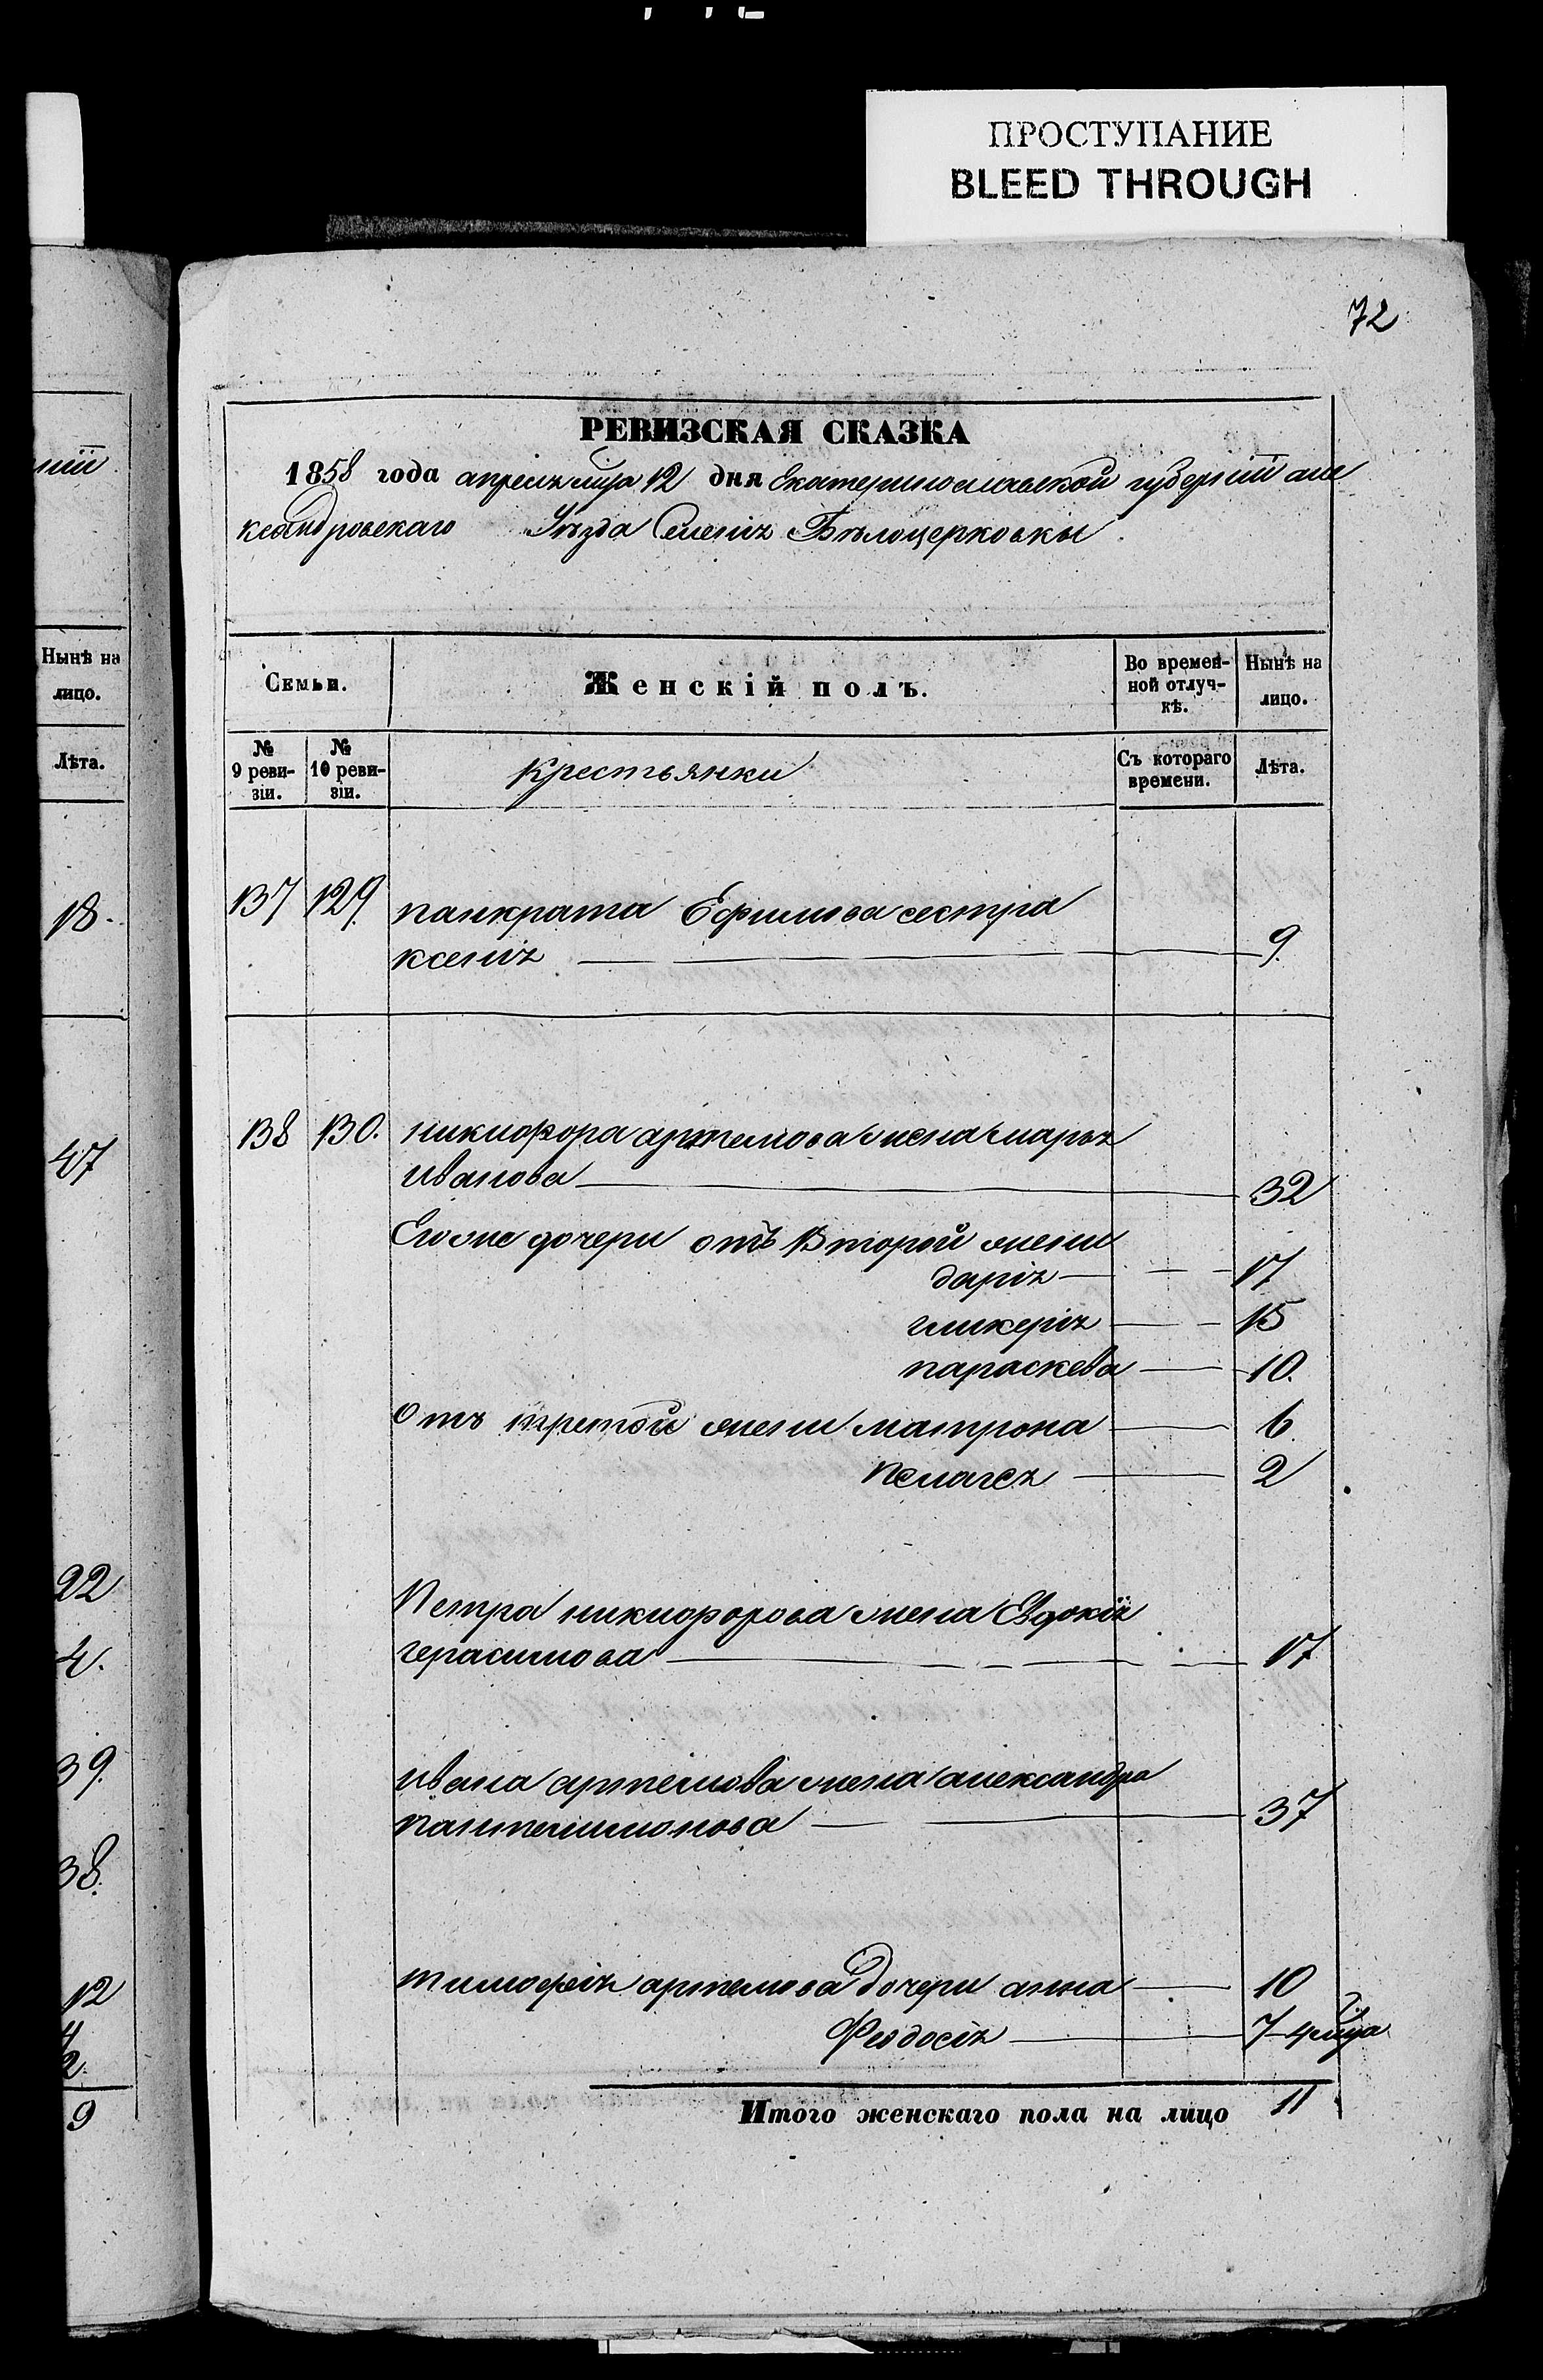 ПРОСТУПАНИЕ
BLEED THROUGH
72
РЕВИЗСКАЯ СКАЗКА
1858 года апреля мца 12 дня Екатеринославской губернии але
ксандровскаго Уѣзда Селенія Бѣлоцерковки
Семьи. Женскій полъ. Во времен-ной отлуч-кѣ. Нынѣ на лицо.
№ 9 реви-зіи. № 10 реви-зіи. Крестьянки Съ котораго времени. Лѣта.
137 129 панкрата Ефимова сестра
ксенія 9.
138 130. никифора артемова жена марья
Иванова 32
Его же дочери отъ Второй жены
дарія 17
гликерія 15
параскева 10.
Отъ третой жены матрона 6
Пелагея 2
Петра никифорова жена Евдокія
герасимова 17
ивана артемова жена александра
пантелимонова 37
тимофея артемова дочери анна 10
Феодосія 7-4 мца
Итого женскаго пола на лицо 11
Нынѣ на
лицо.
Лѣта.
18.
47
22
4.
39.
38.
12
9